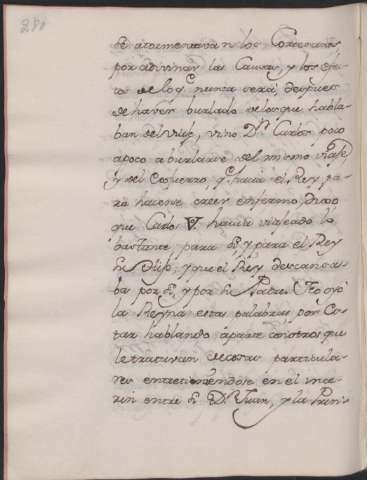 se atormentavan los Cortesanos
por adivinar las Causas, y los efec
tos de lo q̃ nunca será, despues
de haver burlado de los que habla
ban del viaje, vino Dⁿ Carlos poco
apoco a burlarse del mismo viaje
y del esfuerzo, q̃ hacia el Rey pa
ra hacerse creer enfermo, dixo
que Carlos V. havia viajado lo
bastante para sí, y para el Rey
su Hijo, y que el Rey descansa
ba por sí, y por su Padre. No oyó
la Reyna estas palabras por es
tar hablando aparte con otros que
le tratavan de cosas particula
res entreteniendose en el inte
rin entre sí Dⁿ Juan, y la Prin